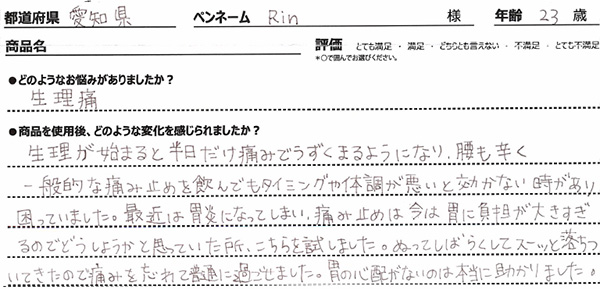 都道府県 愛知県 ペンネーム Rin 様 年齢 23 歳
商品名 評価 とても満足 ・ 満足 ・ どちらとも言えない ・ 不満足 ・ とても不満足
*○で囲んでお選びください。
●どのようなお悩みがありましたか？
生理痛
●商品を使用後、どのような変化を感じられましたか？
生理が始まると半日だけ痛みでうずくまるようになり、腰も辛く
一般的な痛み止めを飲んでもタイミングや体調が悪いと効かない時があり
困っていました。最近は胃炎になってしまい、痛み止めは今は胃に負担が大きすぎ
るのでどうしようかと思っていた所、こちらを試しました。ぬってしばらくしてスーッと落ちつ
いてきたので痛みを忘れて普通に過ごせました。胃の心配がないのは本当に助かりました。